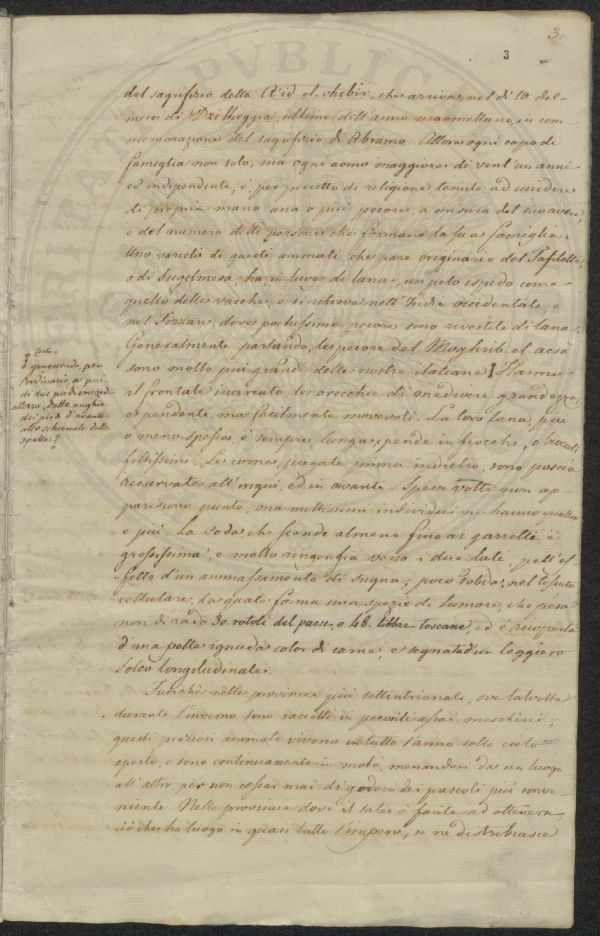 3.
3
del sagrifizio della A'id el-chebir, che arriva nel dì 10 del
mese di Dzilheggia, ultimo dell'anno maomettano, in com
memorazione del sagrifizio di Abramo. Allora ogni capo di
famiglia non solo, ma ogni uomo maggiore di vent'un anni
ed indipendente, è, per precetto di religione, tenuto ad uccidere
di propria mano una o più pecore, a misura del suo avere,
e del numero delle persone che formano la sua famiglia.
Una varietà di questi animali, che pare originario del Tafiletto,
o di Sugelmesa, ha in luogo di lana, un pelo ispido come
quello delle vacche, e si ritrova nell'India occidentale, e
nel Fezzan, dove pochissime pecore sono rivestite di lana.
Generalmente parlando, le pecore del Moghrib el acsà
sono molto più grandi delle nostre italiane. Hanno
il frontale inarcato, le orecchie di mediocre grandezza,
e pendenti, ma facilmente movevoli. La loro lana, più
o meno spessa, è sempre lunga, e pende in fiocchi, o
foltissimi. Le corna, piegate prima indietro, sono poscia
ricurvate all'ingiù, ed in avanti. Spesse volte non ap
pariscono punto, ma moltissimi individui ne hanno quattro
e più. La coda, che scende almeno fino ai garretti è
grossissima, e molto rigonfia verso i due lati pell'ef
fetto d'un ammassamento di sugna, poco solida, nel tessuto
cellulare, la quale forma una spezie di tumore, che pesa
non di rado 30. rotoli del paese, o 48. libbre toscane, ed è ricoperta
d'una pelle ignuda color di carne, e segnata d'un leggiero
solco longitudinale.
Funchè nelle provincie più settentrionali, ove talvolta
durante l'inverno sono raccolti in pecorili assai meschini,
questi preziosi animali vivono in tutto l'anno sotto cielo
aperto, e sono continuamente in moto, menandosi da un luogo
all'altro, per non cessar mai di godere dei pascoli più conve
nienti. Nelle provincie dove il sale è facile ad ottenersi,
ciò che ha luogo in quasi tutto l'impero, se ne distribuisce
giungendo, per
l'ordinario, a più
di due piedi e mezzo di
altezza, dalle unghie
dei piedi d'avanti
allo schienale delle
spalle